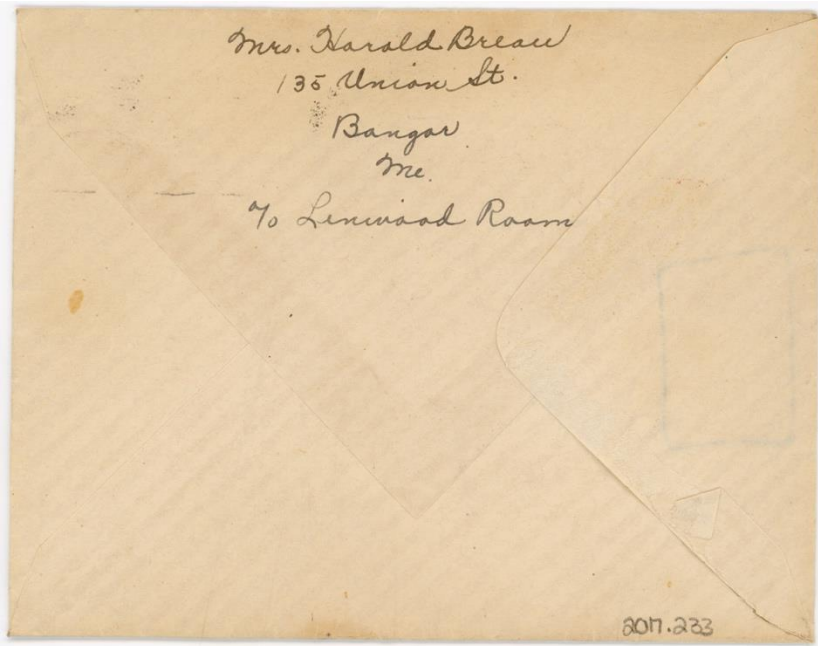 Mrs. Harold Breau
135 Union St.
Bangor
Me.
c/o Linwood Room
2017.233